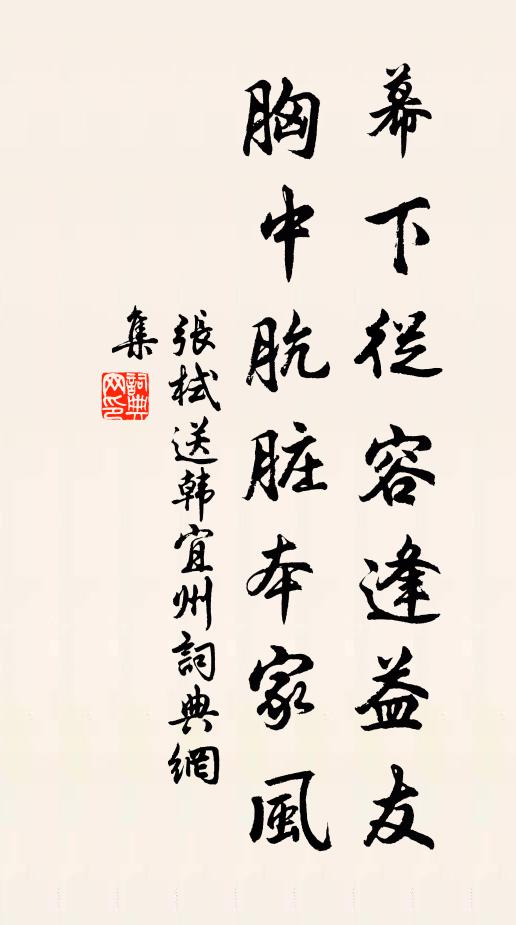 幕下從容逢益友
胸中肮脏本家風
張栻送韩宜州詞典網
集
詞典网印